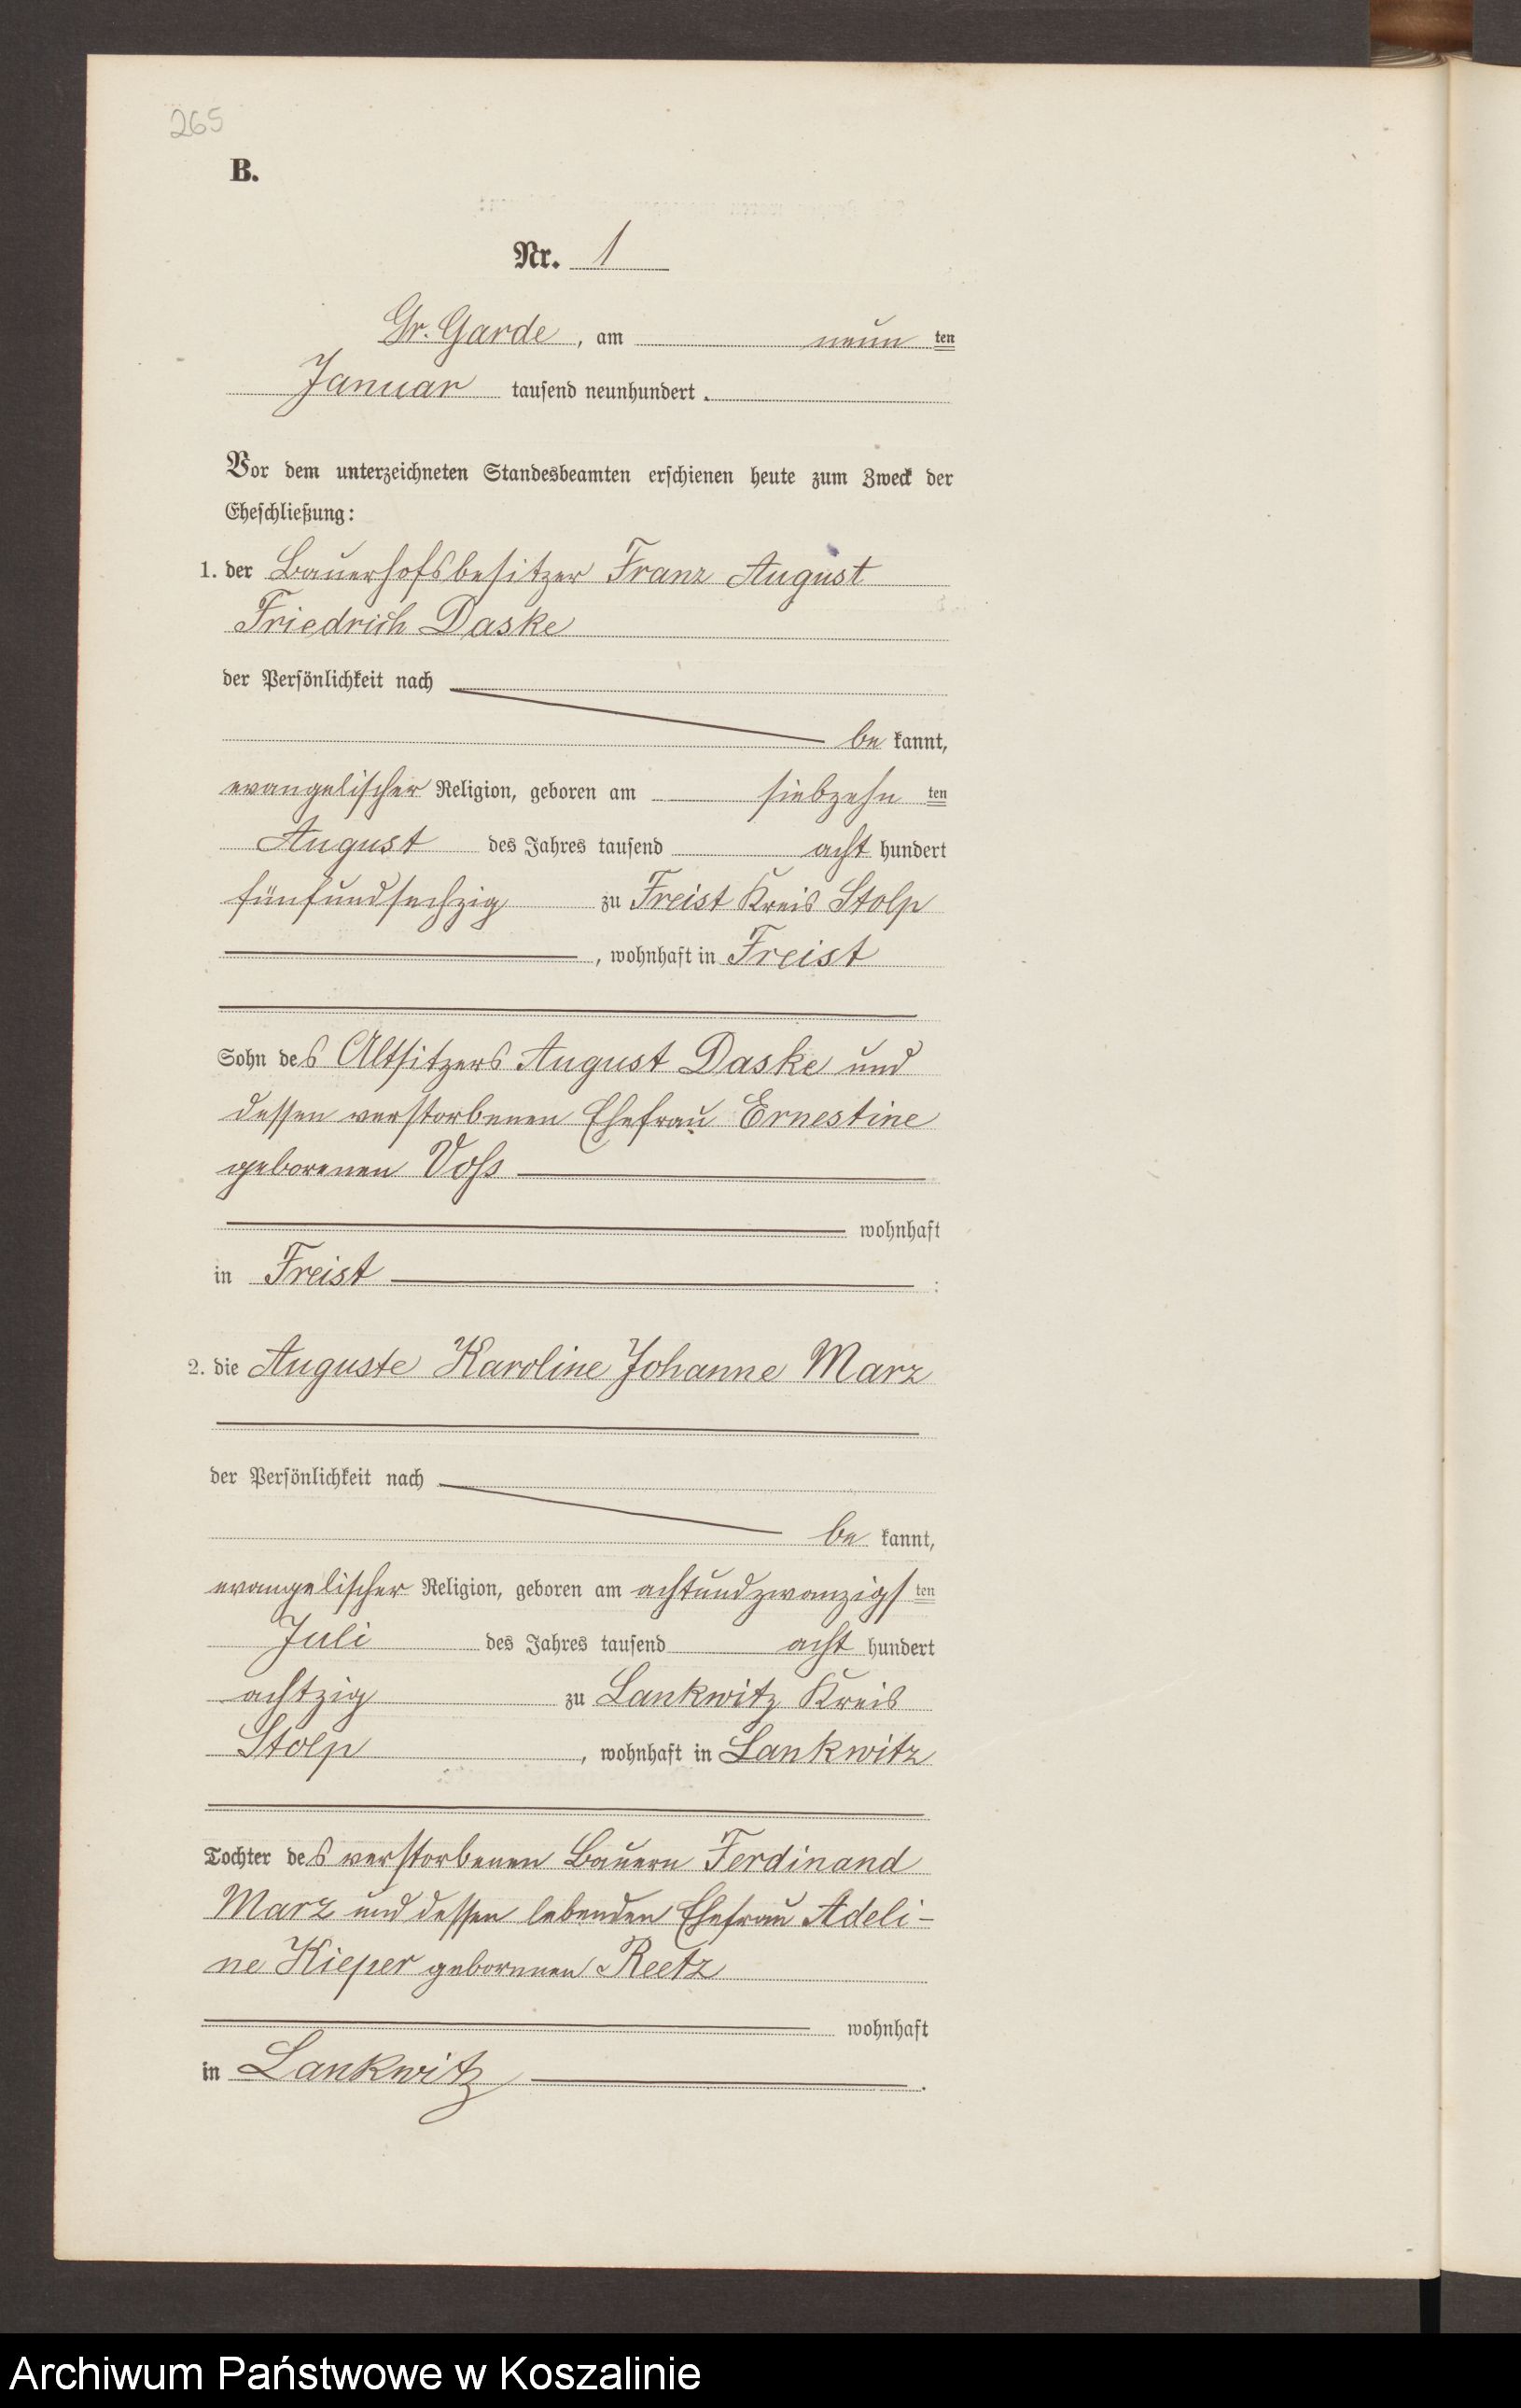 265
B.
Nr. 1
Gr. Garde, am neun ten
Januar tausend neunhundert.
Vor dem unterzeichneten Standesbeamten erschienen heute zum Zweck der
Eheschließung:
1. der Bauerhofsbesitzer Franz August
Friedrich Daske
der Persönlichkeit nach
be kannt,
evangelischer Religion, geboren am siebzehn ten
August des Jahres tausend acht hundert
fünfundsechzig zu Freist Kreis Stolp
, wohnhaft in Freist
Sohn des Altsitzers August Daske und
dessen verstorbenen Ehefrau Ernestine
geborenen Voß
wohnhaft
in Freist :
2. die Auguste Karoline Johanne Marz
der Persönlichkeit nach
be kannt,
evangelischer Religion, geboren am achtundzwanzigs ten
Juli des Jahres tausend acht hundert
achtzig zu Lankwitz Kreis
Stolp , wohnhaft in Lankwitz
Tochter des verstorbenen Bauern Ferdinand
Marz und dessen lebenden Ehefrau Adeli-
ne Kieper geborenen Reetz
wohnhaft
in Lankwitz .
Archiwum Państwowe w Koszalinie